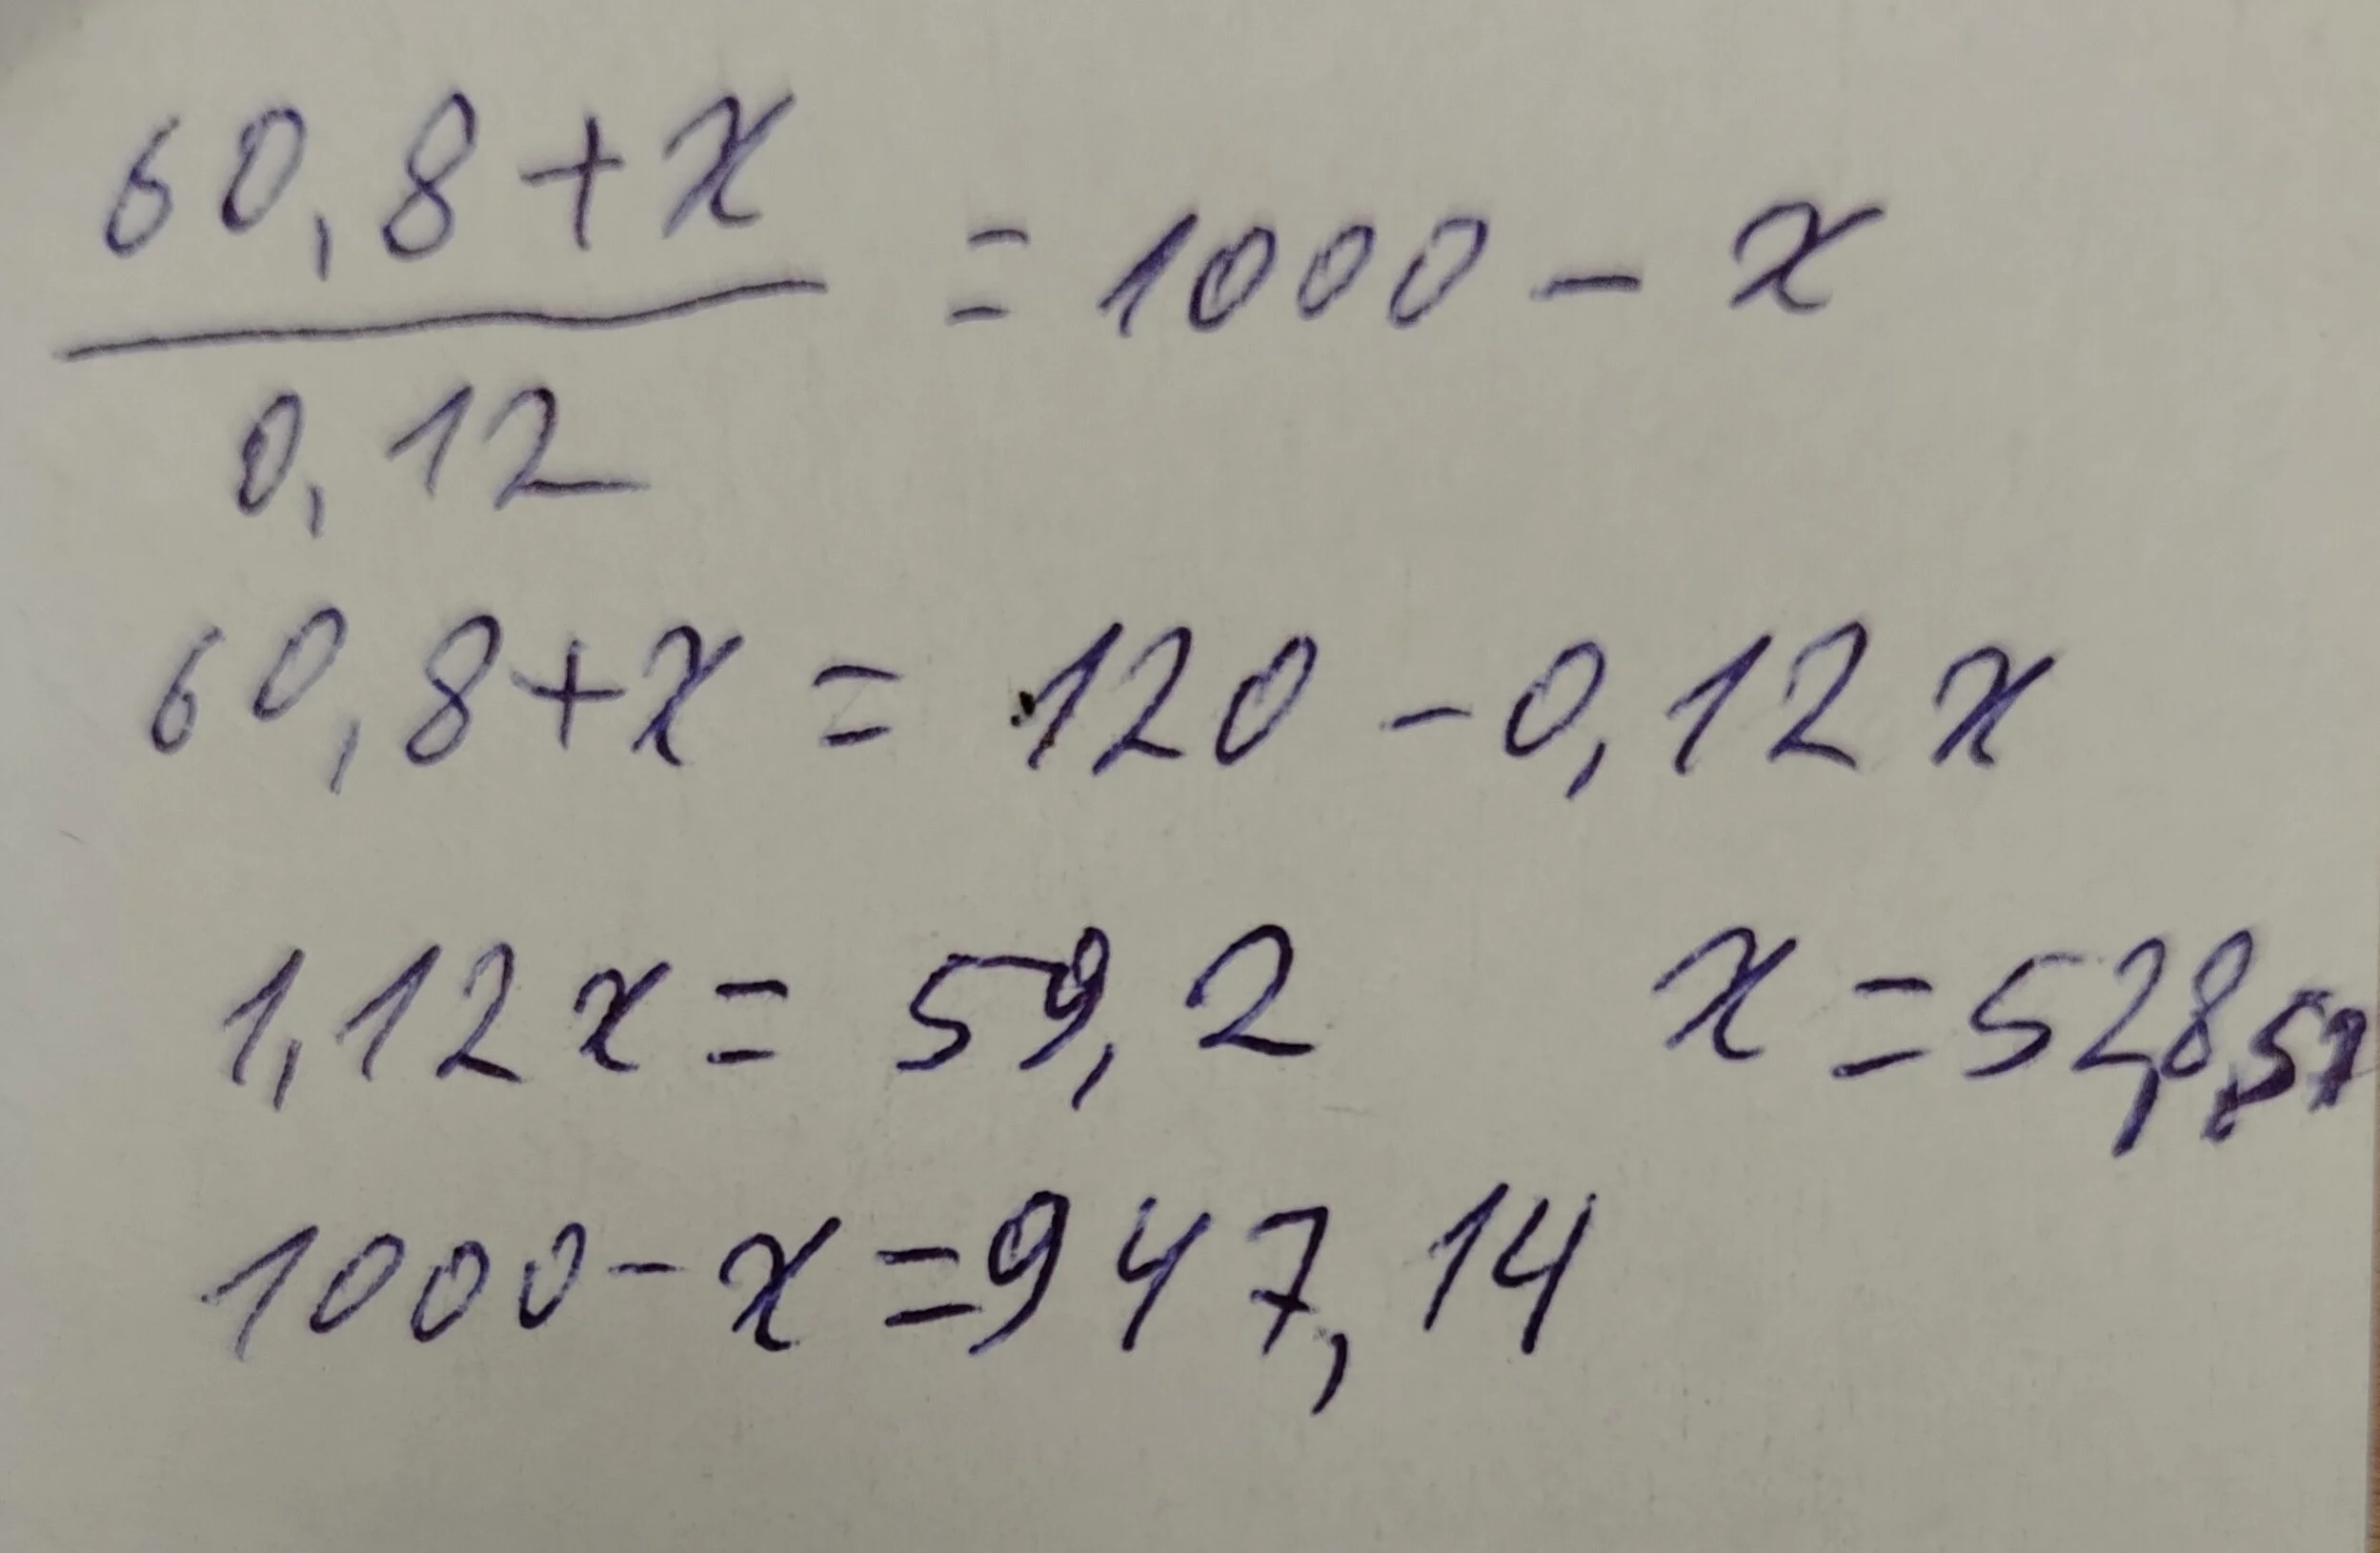 60,8+x
———— = 1000 - x
0,12
60,8+x = 120 - 0,12x
1,12x = 59,2 x = 52,857
1000 - x = 947,14